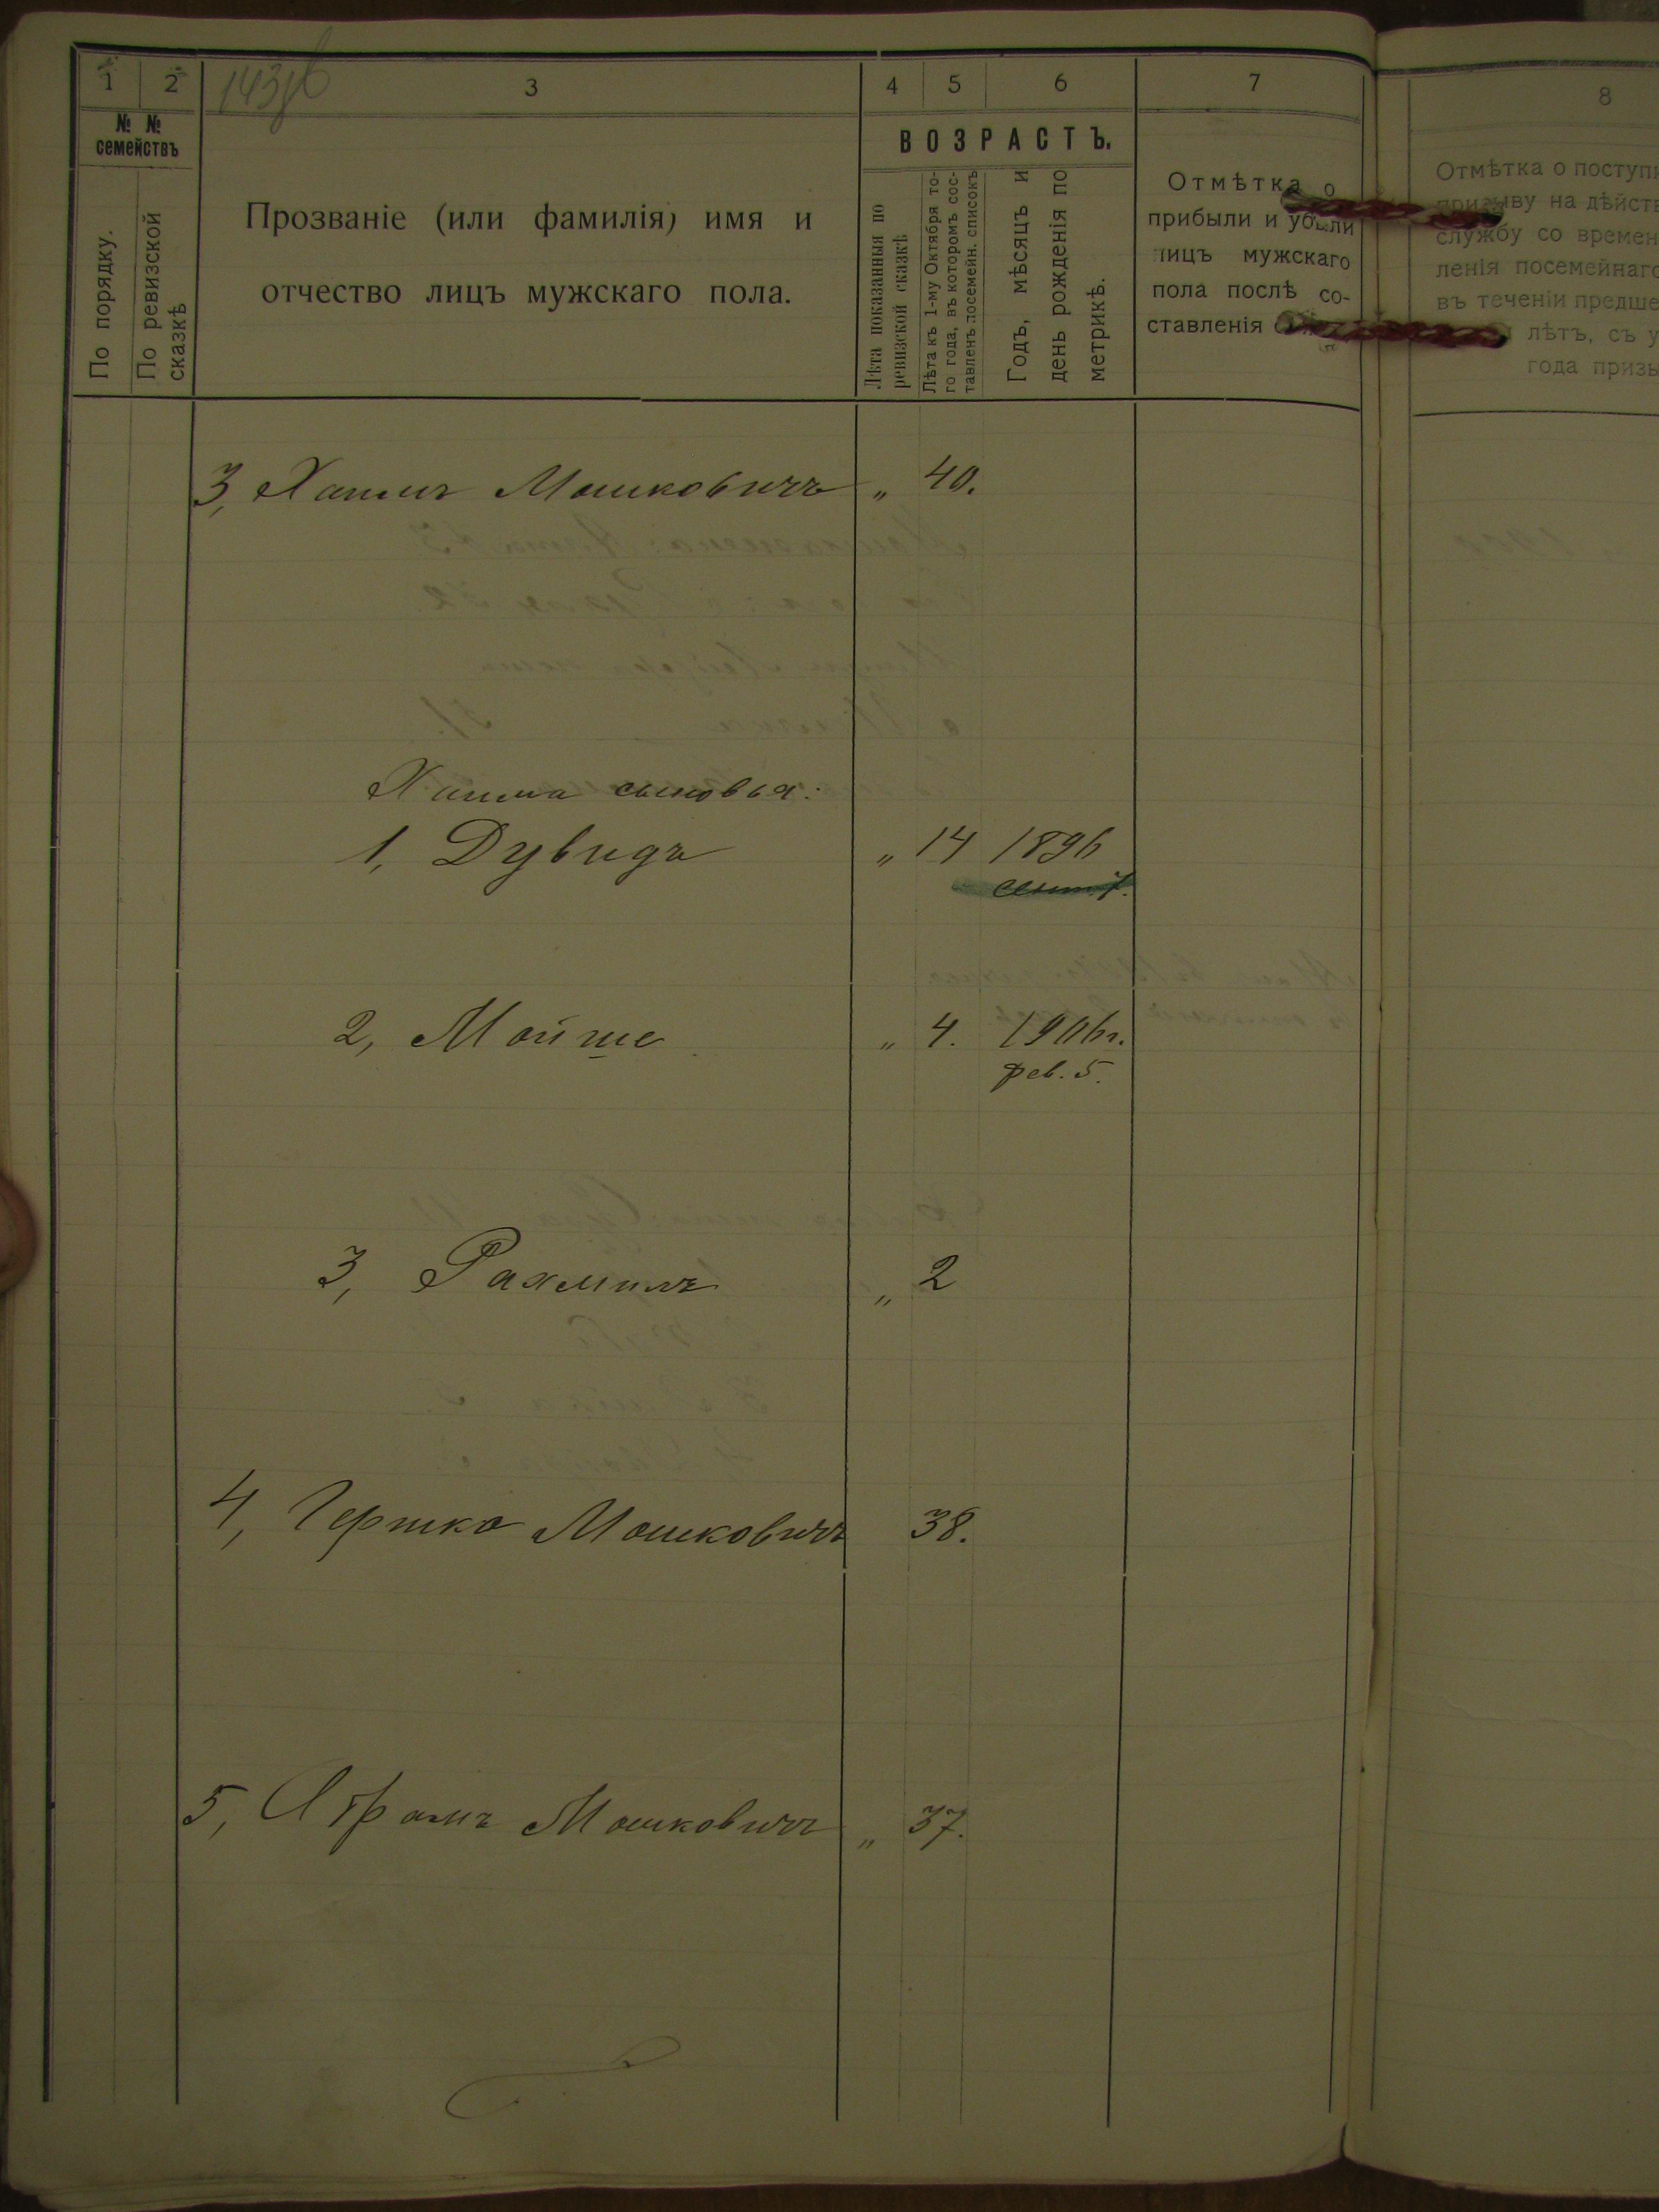 1
2
143об
3
4
5
6
7
8
№ №
семействъ
По порядку.
По ревизской
сказкѣ
Прозваніе (или фамилія) имя и
отчество лицъ мужскаго пола.
ВОЗРАСТЪ.
Лѣта показанныя по
ревизской сказкѣ
Лѣта къ 1-му Октября то-
го года, въ которомъ сос-
тавленъ посемейн. списокъ
Годъ, мѣсяцъ и
день рожденія по
метрикѣ.
Отмѣтка о
прибыли и убыли
лицъ мужскаго
пола послѣ со-
ставленія
Отмѣтка о поступи
призыву на дѣйств
службу со времен
ленія посемейнаго
въ теченіи предше
лѣтъ, съ у
года призы
3, Хаимъ Мошковичъ " 40.
Хаима сыновья:
1, Дувидъ " 14 1896
сент. 7.
2, Мойше " 4. 1906г.
фев. 5.
3, Рахмилъ " 2
4, Гершко Мошковичъ 38.
5, Абрамъ Мошковичъ " 37.